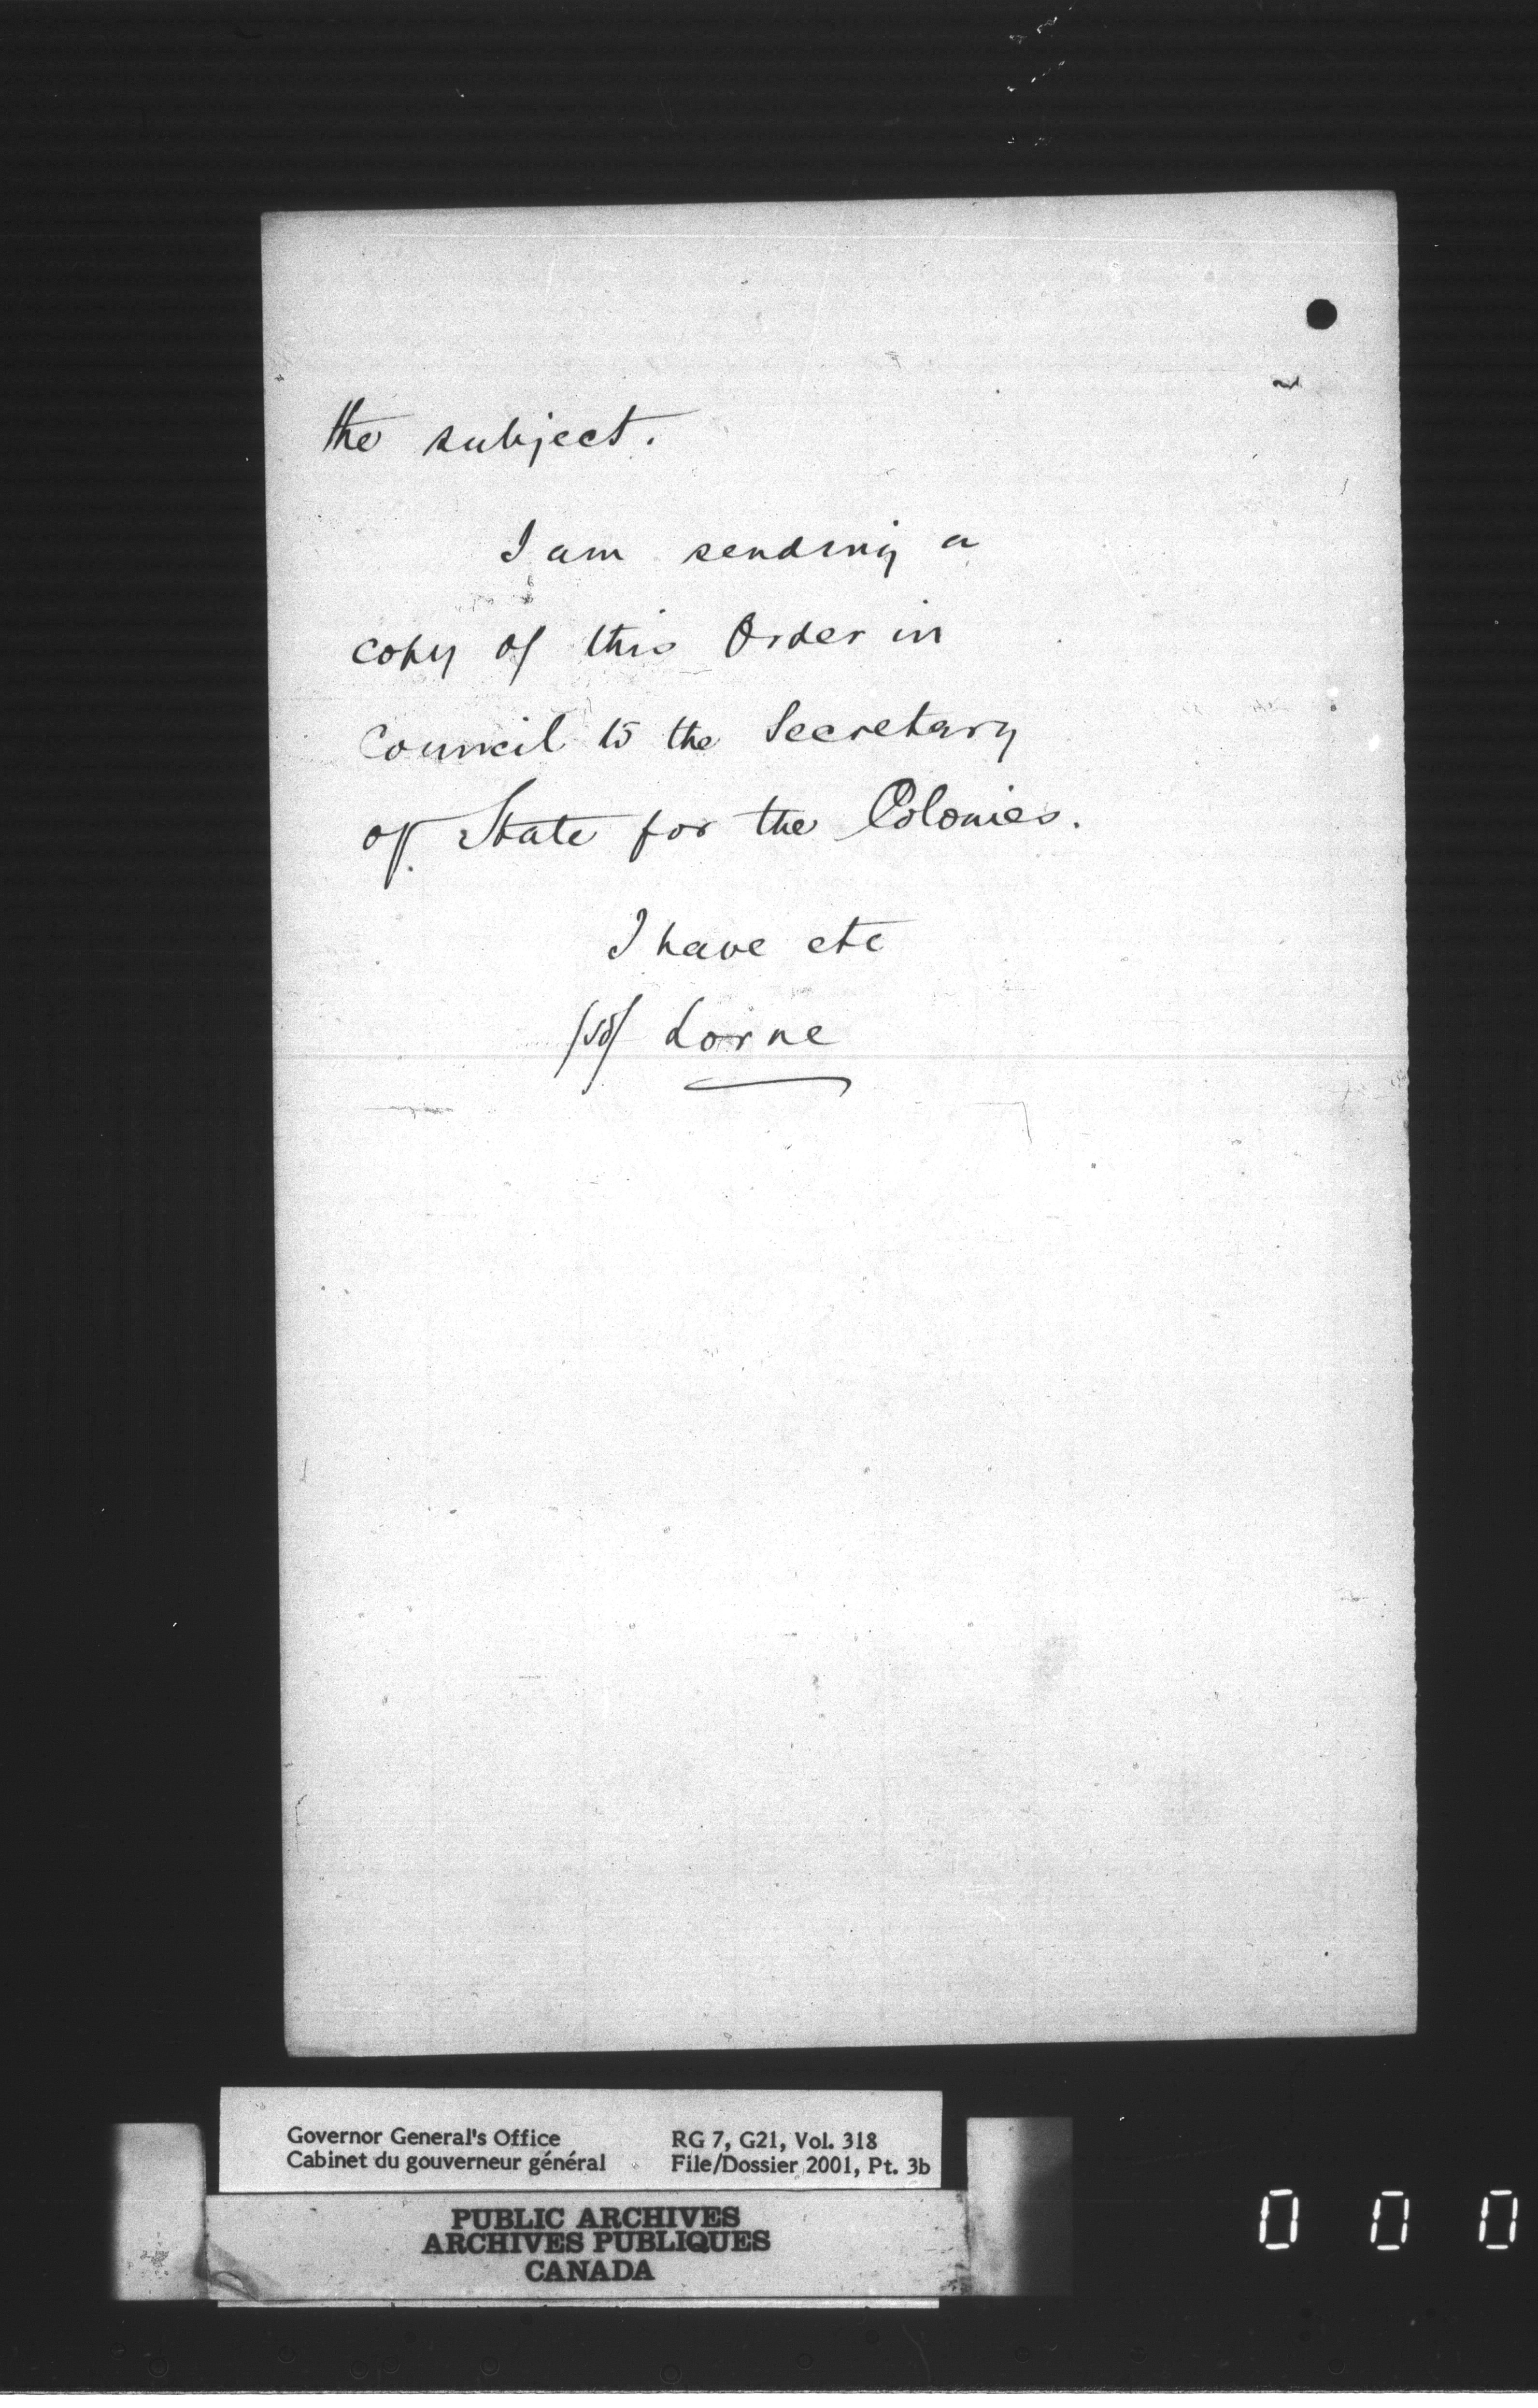 the subject.
I am sending a
copy of this Order in
Council to the Secretary
of State for the Colonies.
I have etc
(sd) Lorne
Governor General's Office
Cabinet du gouverneur général
RG 7, G21, Vol. 318
File/Dossier 2001, Pt. 3b
PUBLIC ARCHIVES
ARCHIVES PUBLIQUES
CANADA
0 0 0